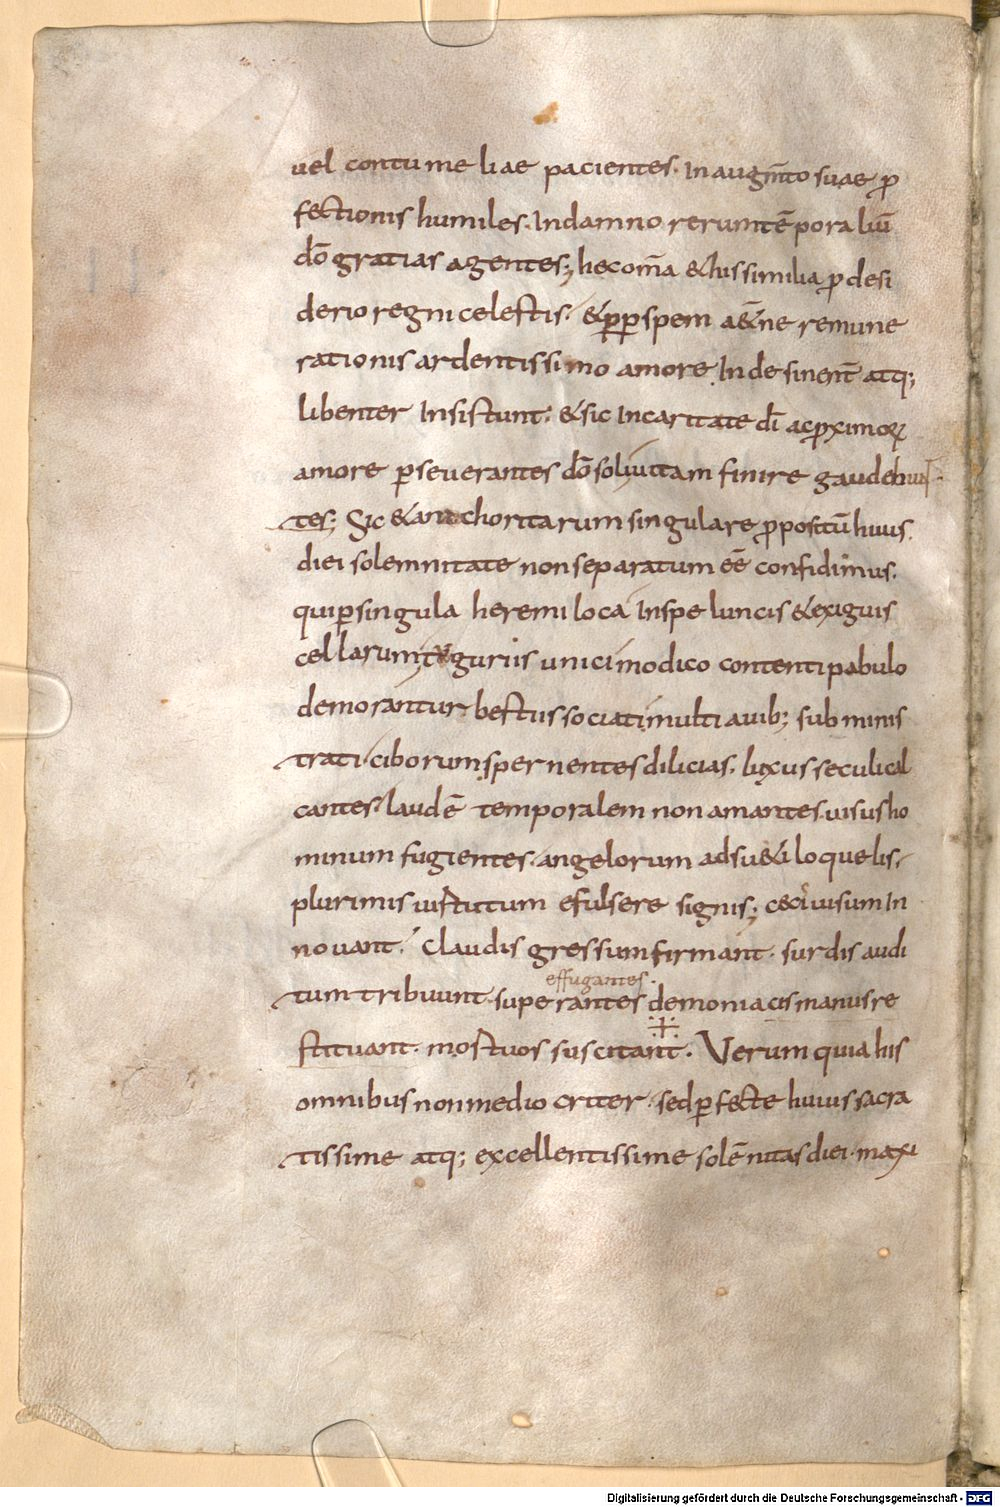 uel contumeliae pacientes. In augm̄to suae ꝓ
fectionis humiles. In damno rerum tēporaliū
dō gratias agentes; hec om̄a & his similia ꝓ desi
derio regni celestis. & ꝓpꝑ spem aet̄ne remune
rationis ardentissimo amore. Indesinent̄ atq;
libenter Insistunt. & sic In caritate dī ac ꝓximoꝝ
amore ꝑseuerantes dō soli uitam finire gaude
tes; Sic & anachoritarum singulare ꝓpositū huius
diei solemnitate non separatum eē confidimus.
qui ꝑ singula heremi loca In speluncis & exiguis
cellarum tuguriis unici modico contenti pabulo
demorantur. bestiis sociati multi auib; subminis
trati ciborum spernentes dilicias. luxus seculi cal
cantes laudē temporalem non amantes. uisus ho
minum fugientes. angelorum adsu&i loquelis.
plurimis uirtutum efulsere signis; cęci uisum In
nouant. Claudis gressum firmant. surdis audi
effugantes.
tum tribuunt. superantes demoniacis manus re
stituant. mortuos suscitant. Verum quia his
omnibus non mediocriter. sed ꝑfecte huius sacra
tissime atq; excellentissime solēnitas diei. maxi
Digitalisierung gefördert durch die Deutsche Forschungsgemeinschaft - DFG